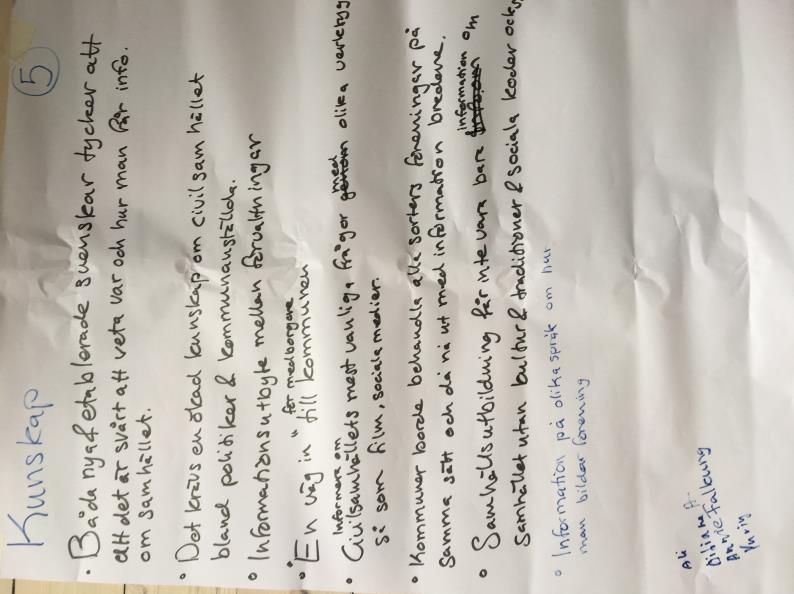 Kunskap
5
• Båda nya & etablerade svenskar tycker att
att det är svårt att veta var och hur man får info.
om samhället.
• Det krävs en ökad kunskap om civilsamhället
bland politiker & kommunanställda.
• Informationsutbyte mellan förvaltningar
för medborgare
• "En väg in" till kommunen
Informera om med
• Civilsamhällets mest vanliga frågor genom olika verktyg
så som film, sociala medier.
• Kommuner borde behandla alla sorters föreningar på
samma sätt och då nå ut med information bredare.
information
• Samhällsutbildning får inte vara bara om
Samhället utan kultur & traditioner & sociala koder också
• Information på olika språk om hur
man bildar förening
Falkung